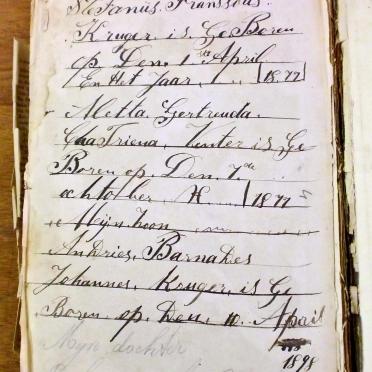 Stefanus, Franssous.
Kruger is GeBoren
op, Den, 1 ste April
En Het Jaar, 1877
Metta, Gertruida,
CaaTriena, Venter is Ge
Boren op, Den, 7 de
ochtober, H 1877
Mijn Zoon
AnDries, BarnaDes
Johannes, Kruger, is Ge
Boren, op, Den, 10, April
1898
Mijn dochter